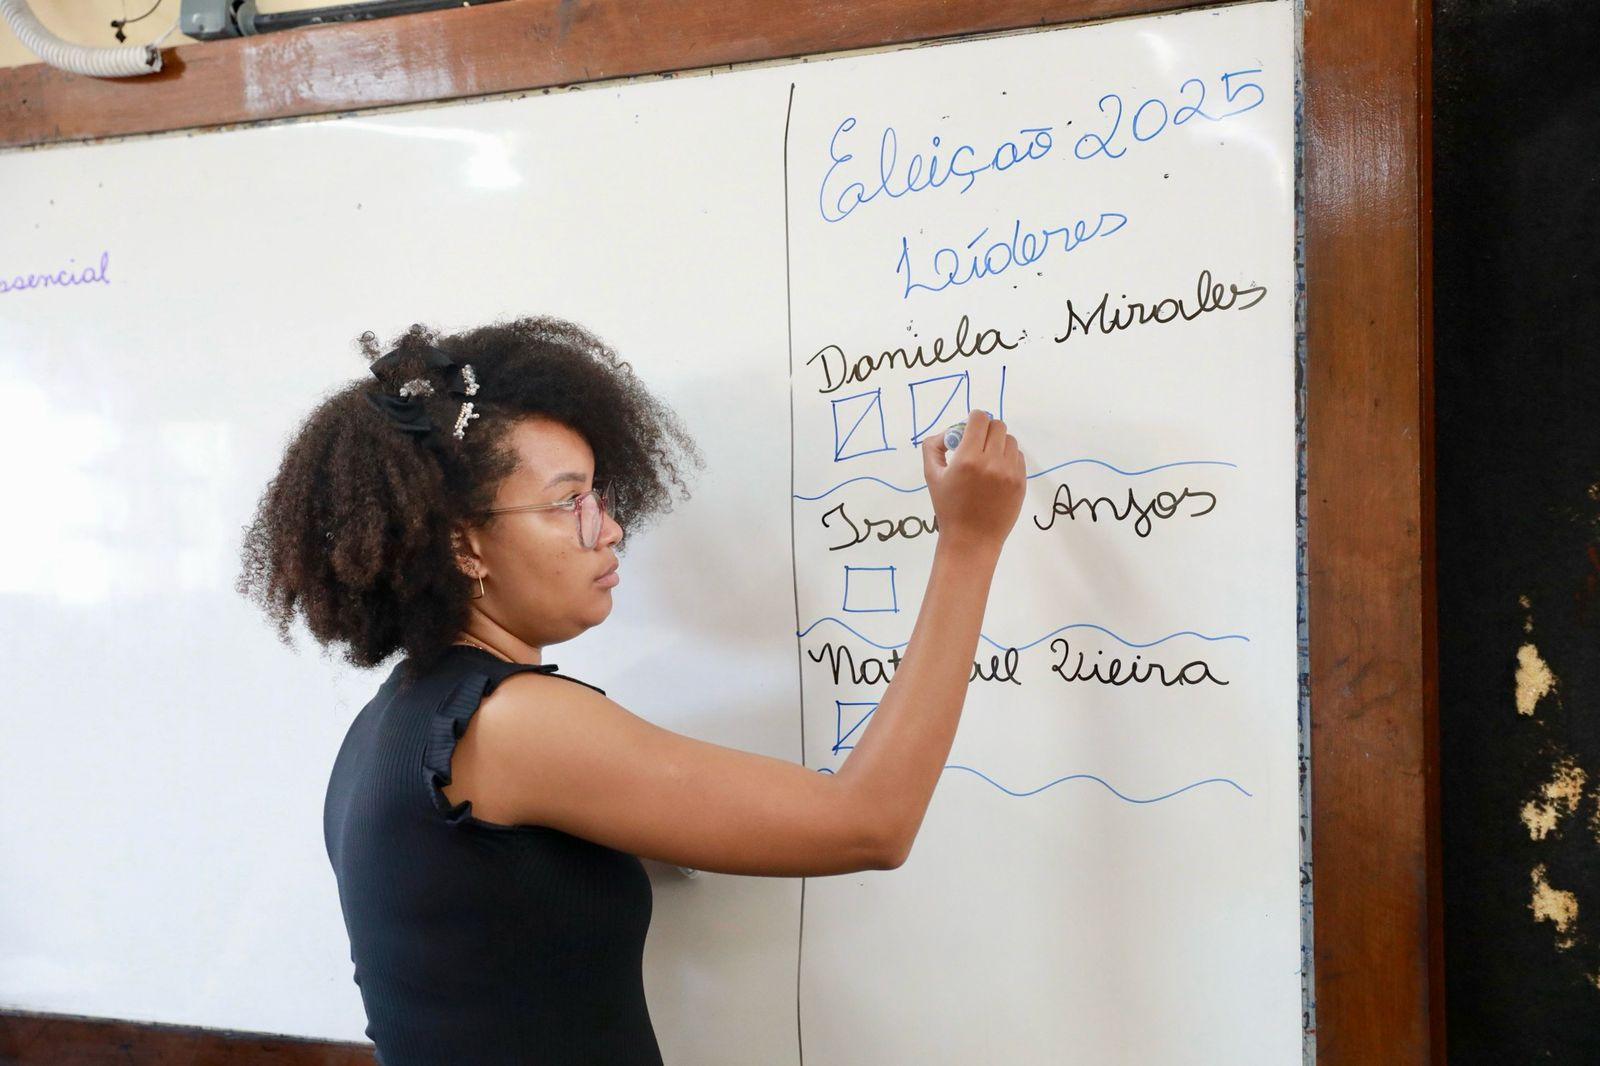 ssencial
Eleição 2025
Leíderes
Daniela Mirales
Isa Anjos
Nat ael Vieira